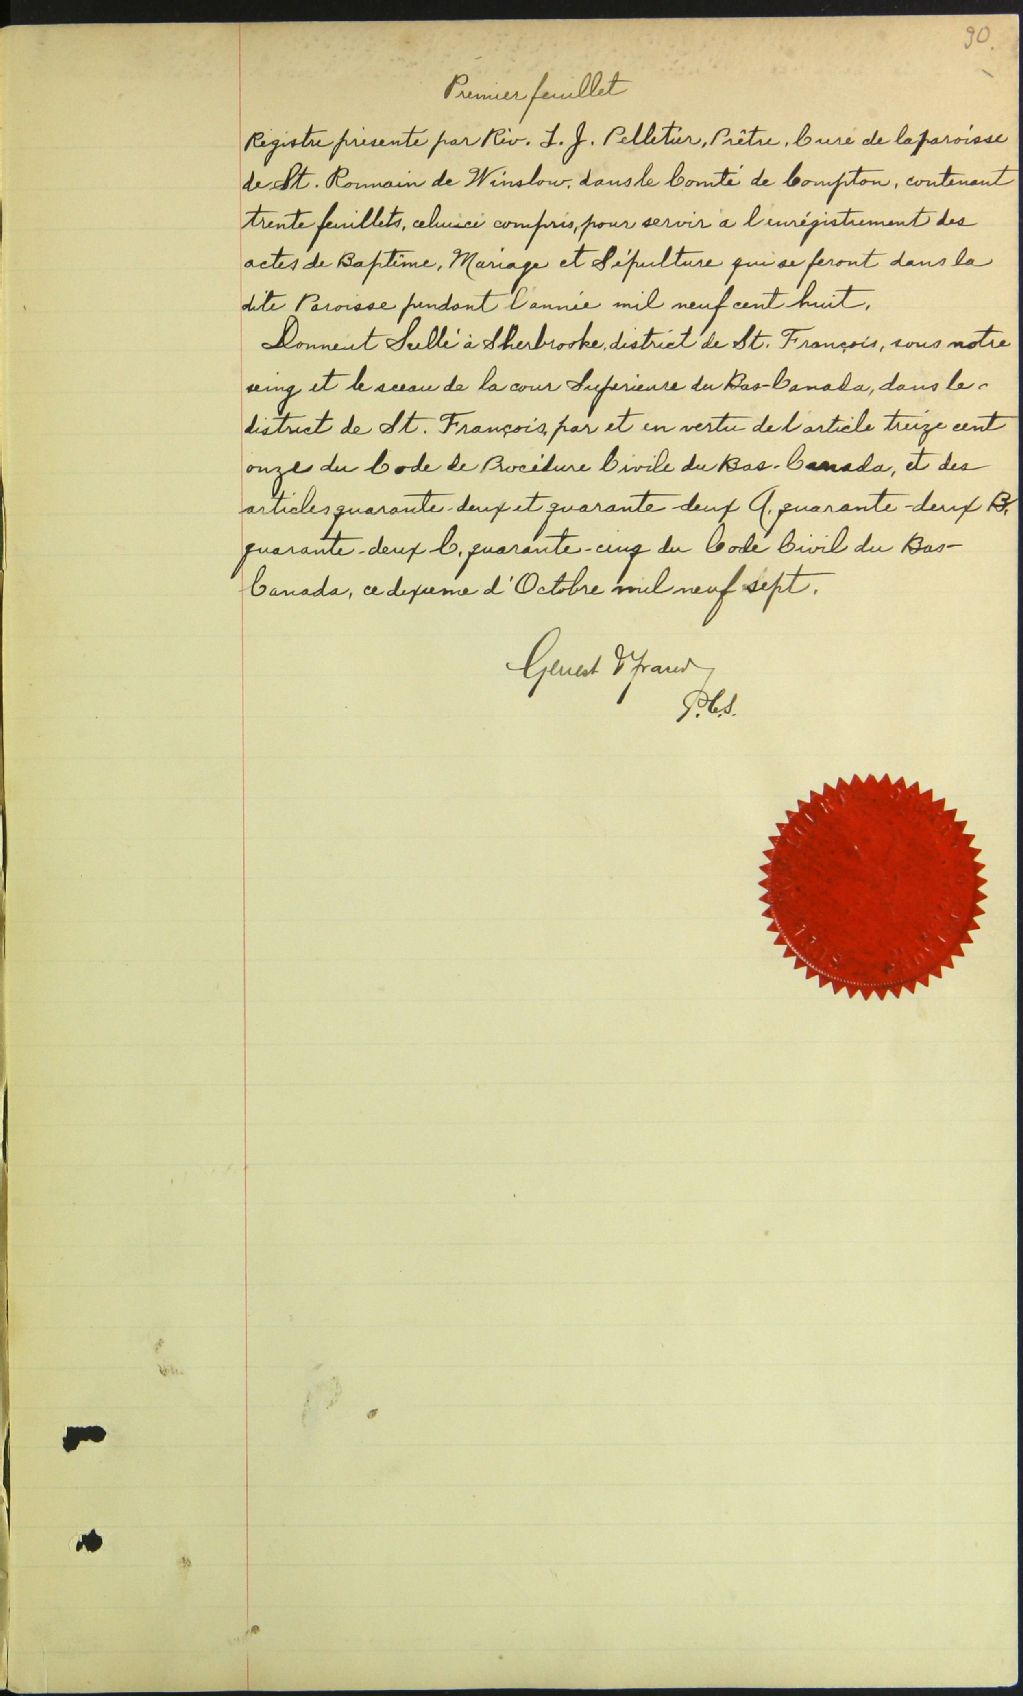 90.
Premier feuillet
Registre présenté par Rév. L. J. Pelletier, Prêtre, Curé de la paroisse
de St. Romain de Winslow, dans le Comté de Compton, contenant
trente feuillets, celui-ci compris, pour servir à l'enrégistrement des
actes de Baptême, Mariage et Sépulture qui se feront dans la
dite Paroisse pendant l'année mil neuf cent huit.
Donnent Scellé à Sherbrooke, district de St. François, sous notre
seing et le sceau de la cour Superieure du Bas-Canada, dans le
district de St. François, par et en vertu de l'article treize cent
onze du Code de Procédure Civile du Bas-Canada, et des
articles quarante-deux et quarante-deux A. quarante-deux B.
quarante-deux C. quarante-cinq du Code Civil du Bas-
Canada, ce dixieme d'Octobre mil neuf sept.
Genest &
P.C.S.